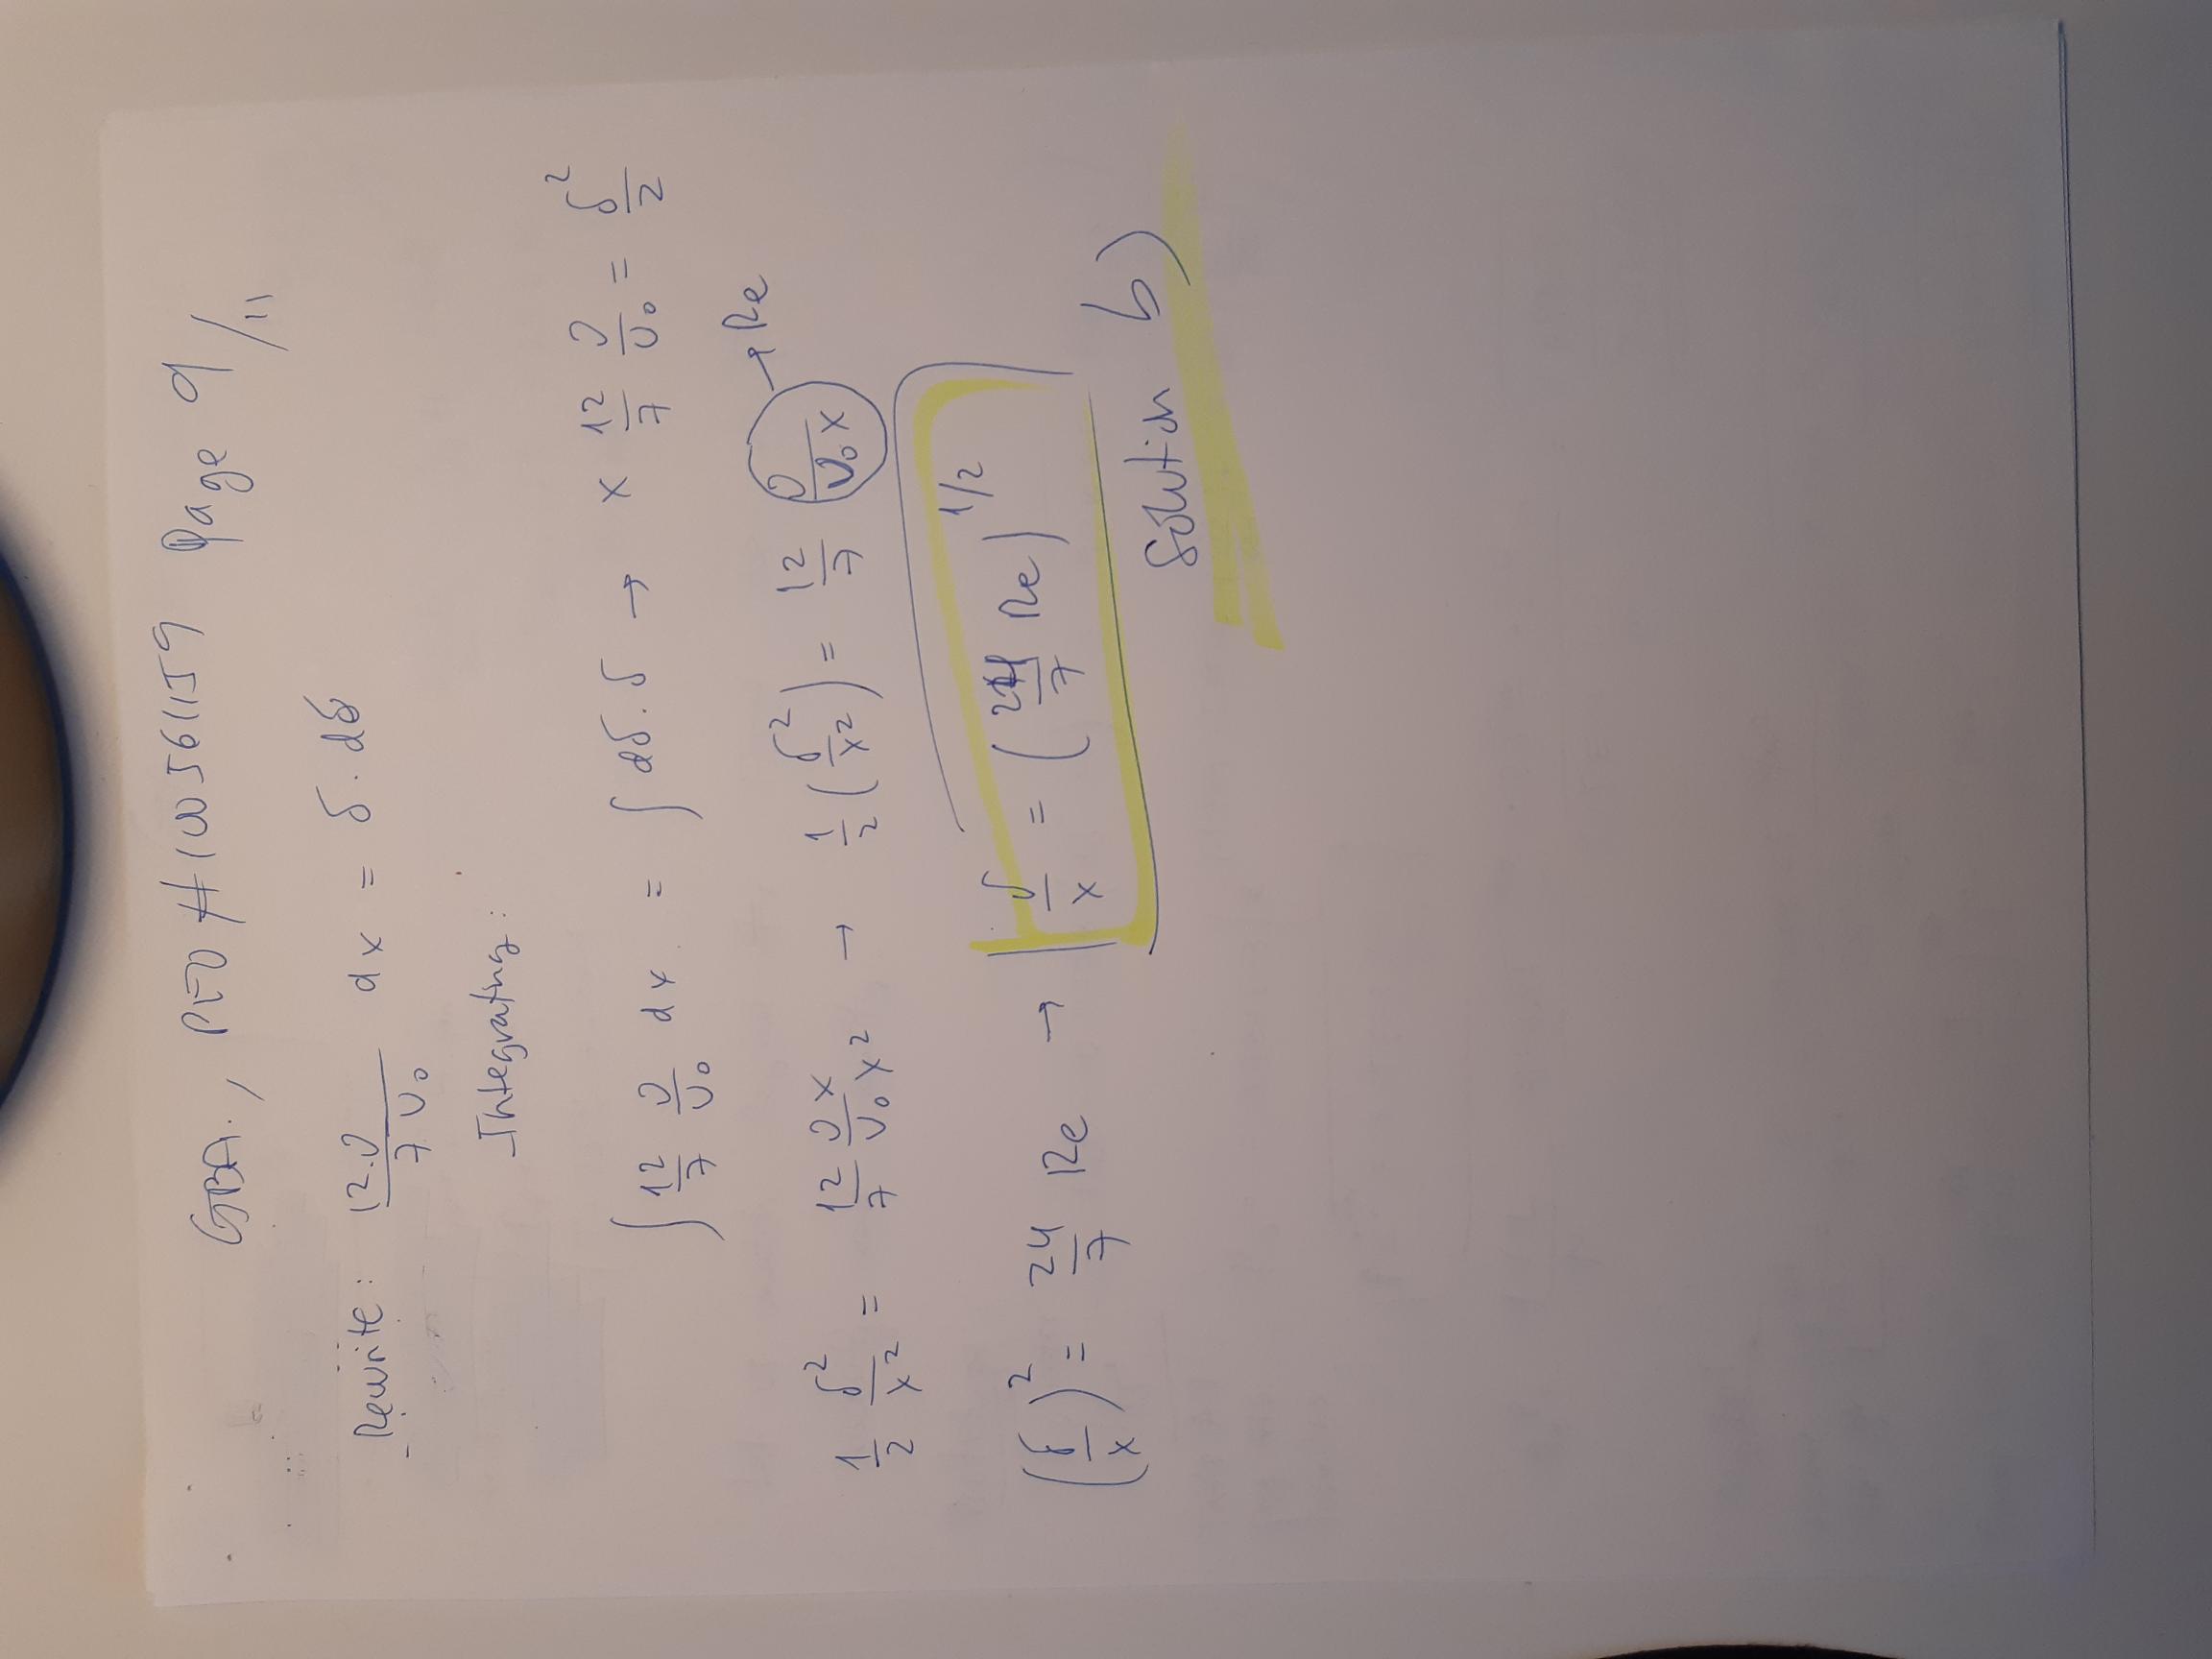 GBA., PEO #100561159 Page 9/11
Rewrite: 12.ν / 7 U₀ dx = δ. dδ
Integrating:
∫ 12/7 ν/U₀ dx = ∫ dδ. δ → x 12/7 ν/U₀ = δ²/2
1/2 δ²/x² = 12/7 νx/U₀x² → 1/2 (δ²/x²) = 12/7 ν/U₀x → Re
(δ/x)² = 24/7 Re → δ/x = (24/7 Re)^1/2
Solution b)